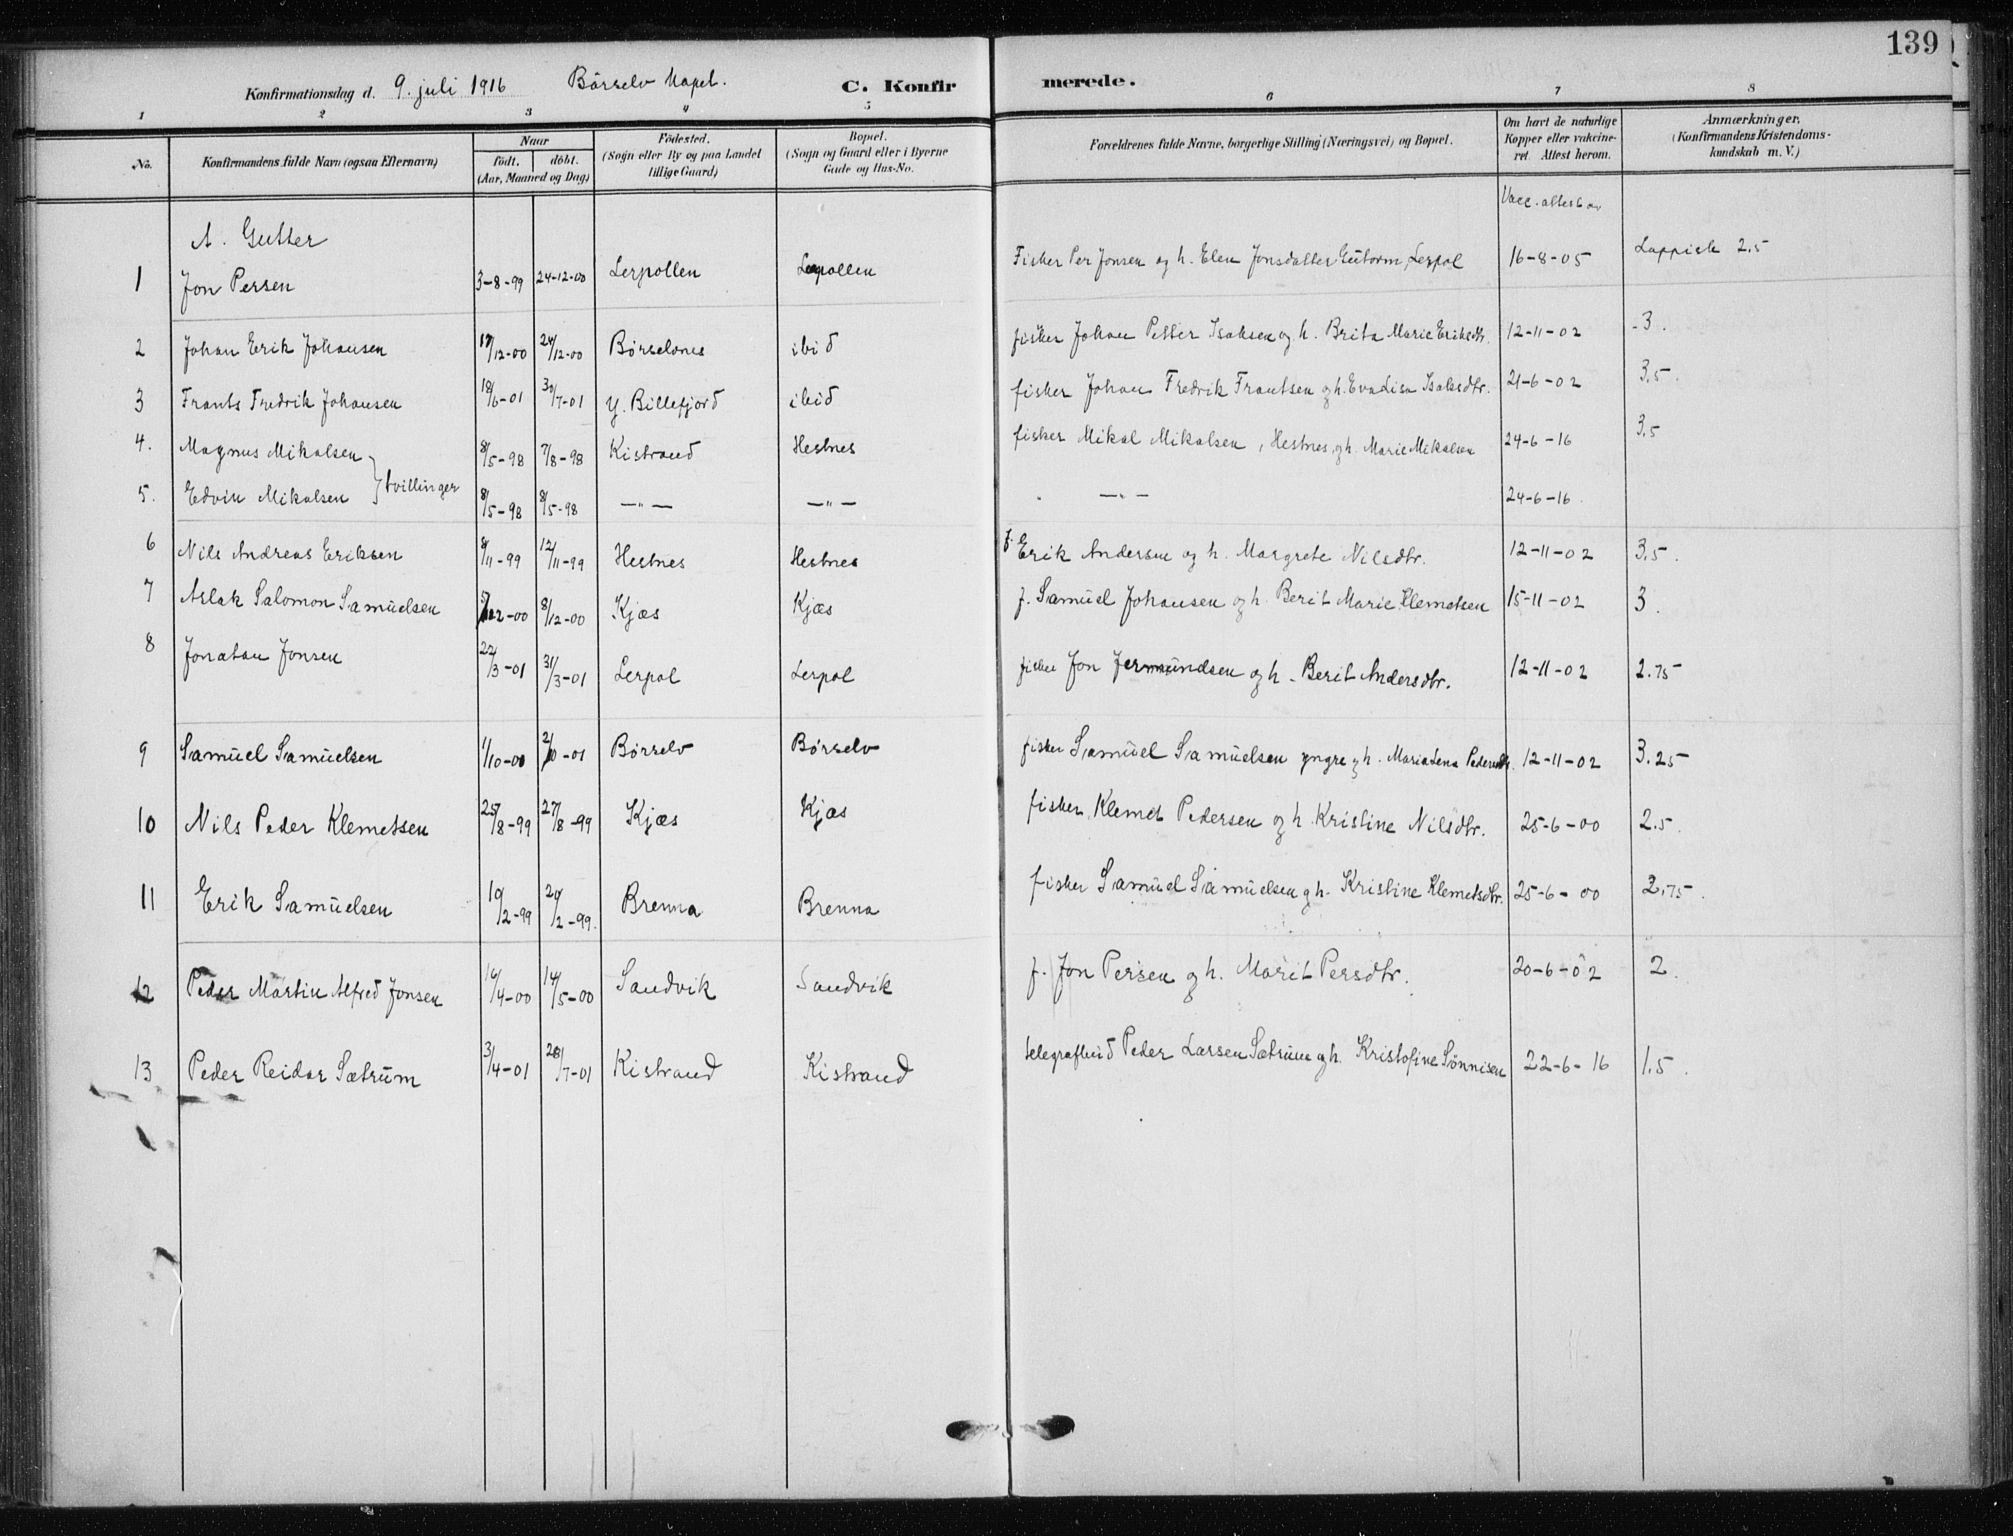 139
Konfirmationsdag d. 9. juli 1916 Børselv Kapel. C. Konfirmerede.
1 2 3 4 5 6 7 8
No. Konfirmandens fulde Navn (ogsaa Efternavn) Naar født. døbt. (Aar, Maaned og Dag) Fødested. (Sogn eller By og paa Landet tillige Gaard) Bopæl. (Sogn og Gaard eller i Byerne Gade og Hus-No. Forældrenes fulde Navne, borgerlige Stilling (Næringsvei) og Bopæl. Om havt de naturlige Kopper eller vakcineret. Attest herom. Anmærkninger. (Konfirmandens Kristendomskundskab m. V.)
Vacc. attest av
A. Gutter
1 Jon Persen 3-8-99 24-12-00 Lerpollen Lerpollen Fisker Per Jonsen og h. Elen Jonsdatter Gutorm, Lerpol 16-8-05 Lappisk 2.5
2 Johan Erik Johansen 17/12-00 24/12-00 Børselvnes ibid fisker Johan Petter Isaksen og h. Brita Marie Eriksdtr. 12-11-02 3.
3 Frants Fredrik Johansen 18/6-01 30/7-01 Y. Billefjord ibid fisker Johan Fredrik Frantsen og h. Eva Lisa Isaksdtr. 21-6-02 3.5.
4. Magnus Mikalsen } tvillinger 8/5-98 7/8-98 Kistrand Hestnes fisker Mikal Mikalsen, Hestnes, og h. Marie Mikalsen 24-6-16 3.5
5. Edvin Mikalsen 8/5-98 8/5-98 —"— —"— —"— 24-6-16.
6 Nils Andreas Eriksen 8/11-99 12/11-99 Hestnes Hestnes f. Erik Andersen og h. Margrete Nilsdtr. 12-11-02 3.5.
7 Aslak Salomon Samuelsen 5/12-00 8/12-00 Kjæs Kjæs f. Samuel Johansen og h. Berit Marie Klemetsen 15-11-02 3.
8 Jonatan Jonsen 22/3-01 31/3-01 Lerpol Lerpol fisker Jon Jermundsen og h. Berit Andersdtr. 12-11-02 2.75
9 Samuel Samuelsen 1/10-00 2/10-01 Børselv Børselv fisker Samuel Samuelsen yngre og h. Maria Lena Pedersdtr. 12-11-02 3.25
10 Nils Peder Klemetsen 25/8-99 27/8-99 Kjæs Kjæs fisker Klemet Pedersen og h. Kristine Nilsdtr. 25-6-00 2.5.
11 Erik Samuelsen 10/2-99 20/2-99. Brenna Brenna fisker Samuel Samuelsen og h. Kristine Klemetsdtr. 25-6-00 2.75.
12 Peder Martin Alfred Jonsen 16/4-00 14/5-00 Sandvik Sandvik f. Jon Persen og h. Marit Persdtr. 20-6-02 2.
13 Peder Reidar Sætrum 3/4-01 28/7-01 Kistrand Kistrand telegrafbud Peder Larsen Sætrum og h. Kristofine Sønnisen 22-6-16 1.5.